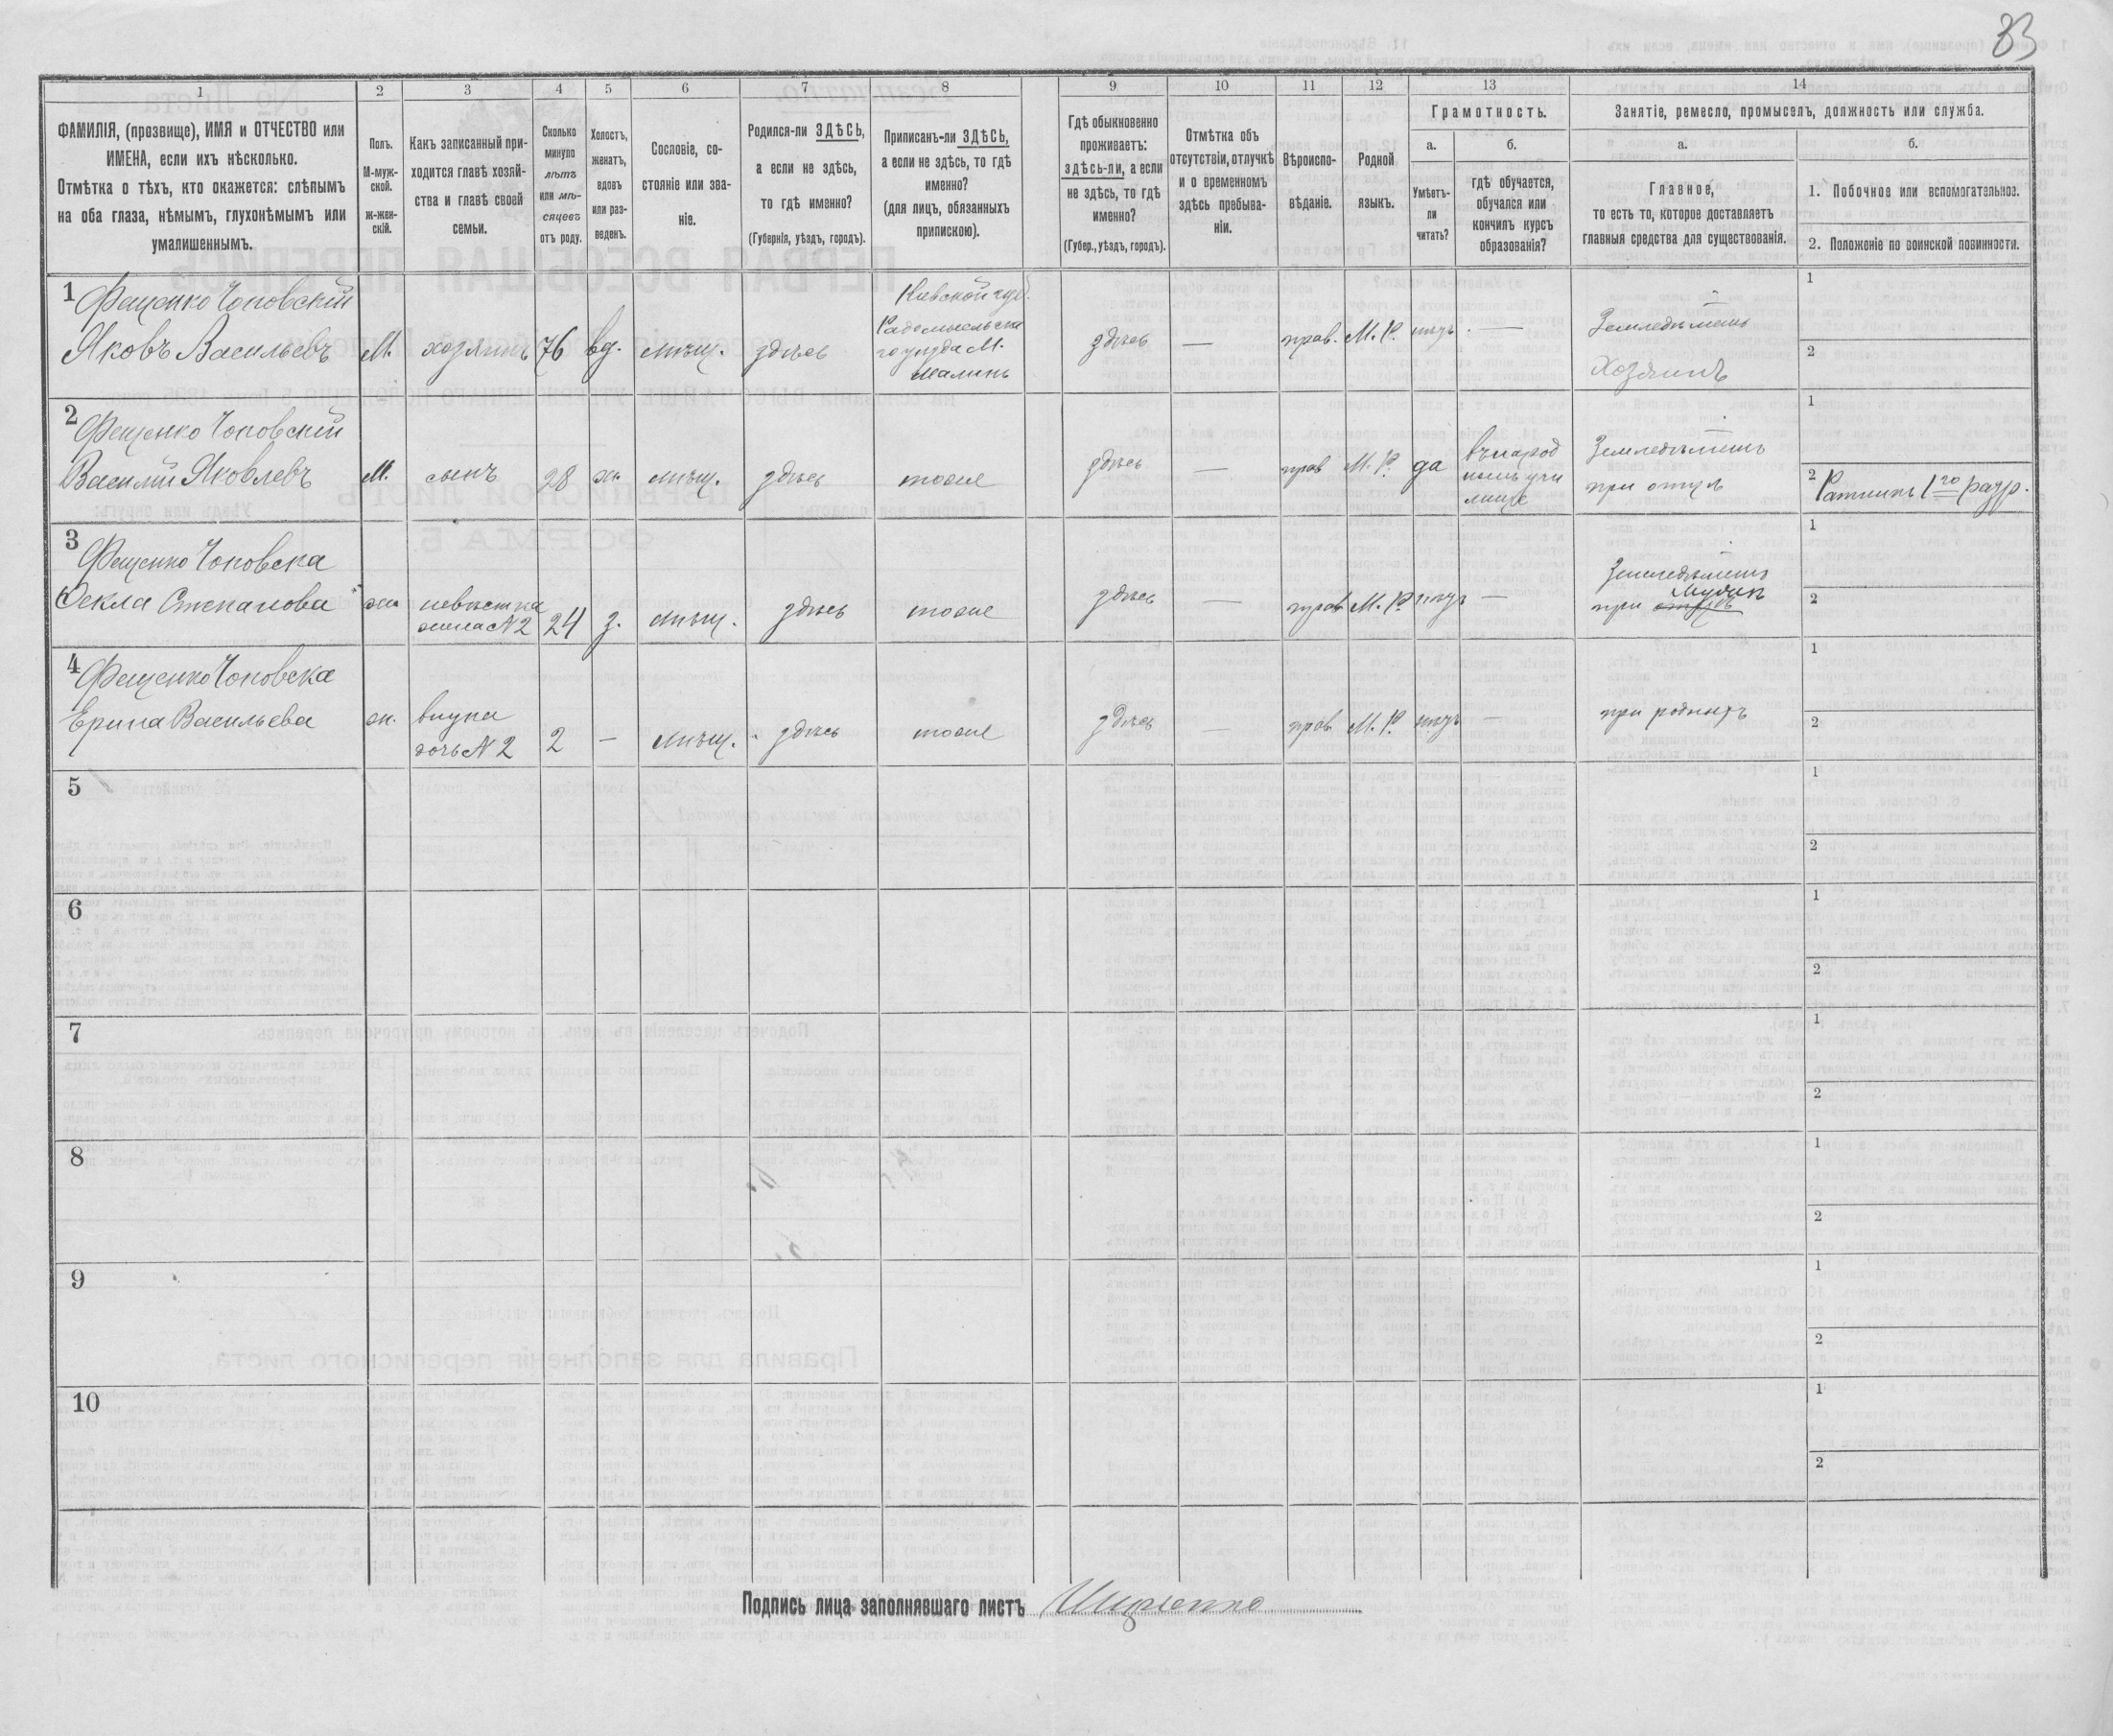 83
1 2 3 4 5 6 7 8 9 10 11 12 13 14
ФАМИЛІЯ, (прозвище), ИМЯ и ОТЧЕСТВО или
ИМЕНА, если ихъ нѣсколько.
Отмѣтка о тѣхъ, кто окажется: слѣпымъ
на оба глаза, нѣмымъ, глухонѣмымъ или
умалишеннымъ.
Полъ.
М-муж-
ской.
ж-жен-
скій.
Какъ записанный при-
ходится главѣ хозяй-
ства и главѣ своей
семьи.
Сколько
минуло
лѣтъ
или мѣ-
сяцевъ
отъ роду.
Холостъ,
женатъ,
вдовъ
или раз-
веденъ.
Сословіе, со-
стояніе или зва-
ніе.
Родился-ли ЗДѢСЬ,
а если не здѣсь,
то гдѣ именно?
(Губернія, уѣздъ, городъ).
Приписанъ-ли ЗДѢСЬ,
а если не здѣсь, то гдѣ
именно?
(для лицъ, обязанныхъ
припискою).
Гдѣ обыкновенно
проживаетъ:
здѣсь-ли, а если
не здѣсь, то гдѣ
именно?
(Губер., уѣздъ, городъ).
Отмѣтка объ
отсутствіи, отлучкѣ
и о временномъ
здѣсь пребыва-
ніи.
Вѣроиспо-
вѣданіе.
Родной
языкъ.
Грамотность.
а.
Умѣетъ-
ли
читать?
б.
гдѣ обучается,
обучался или
кончилъ курсъ
образованія?
Занятіе, ремесло, промыселъ, должность или служба.
а.
Главное,
то есть то, которое доставляетъ
главныя средства для существованія.
б.
1. Побочное или вспомогательное.
2. Положеніе по воинской повинности.
1 Фещенко Чоповскій
Яковъ Васильевъ
М.
хозяинъ
76
вд.
мѣщ.
здѣсь
Кіевской губ.
Радомысльска
го уѣзда М.
Малинъ
здѣсь
—
прав.
М. Р.
нѣтъ
—
Земледѣлецъ
Хозяинъ
1
2
2 Фещенко Чоповскій
Василій Яковлевъ
М.
сынъ
28
ж.
мѣщ.
здѣсь
тоже
здѣсь
—
прав
М. Р.
да
въ народ
номъ учи
лищѣ
Земледѣлецъ
при отцѣ
1
2 Ратникъ 1го разр.
3 Фещенко Чоповска
Фекла Степанова
ж
невѣстка
жена N 2
24
з.
мѣщ.
здѣсь
тоже
здѣсь
—
прав
М. Р.
нѣтъ
—
Земледѣлецъ
при мужѣ
1
2
4 Фещенко Чоповска
Ерина Васильева
ж.
внука
дочь N 2
2
—
мѣщ.
здѣсь
тоже
здѣсь
—
прав
М. Р.
нѣтъ
—
при родныхъ
1
2
5
1
2
6
1
2
7
1
2
8
1
2
9
1
2
10
1
2
Подпись лица заполнявшаго листъ